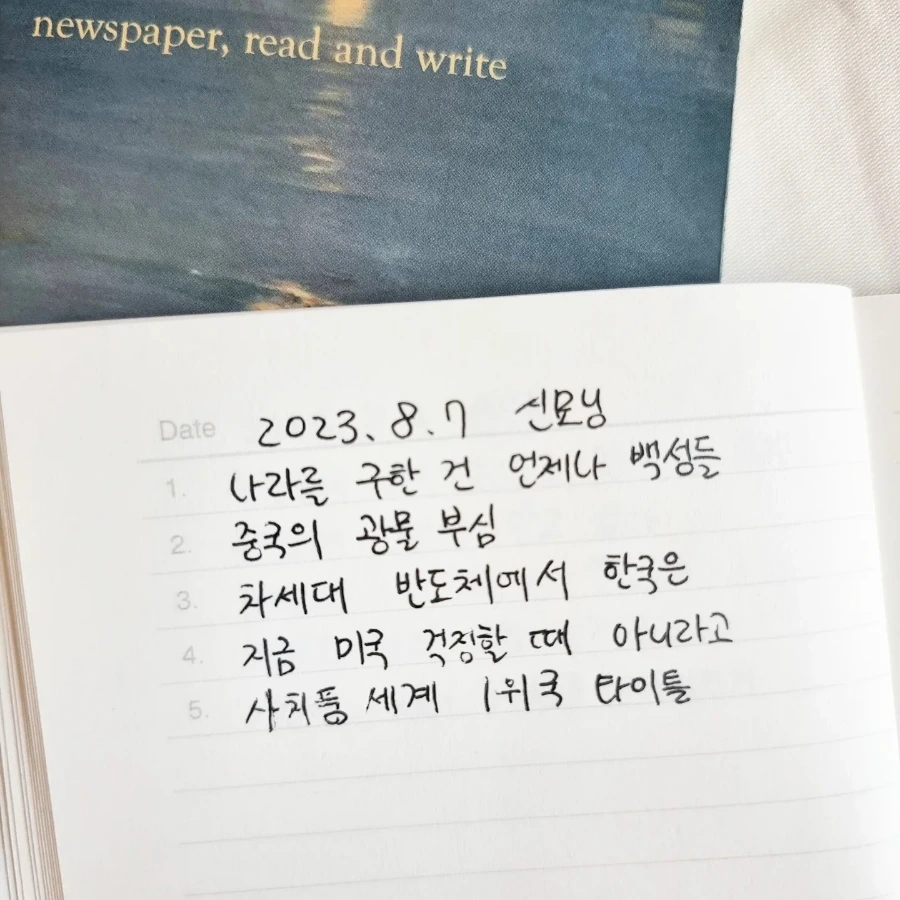 newspaper, read and write
Date 2023. 8. 7 신모닝
1. 나라를 구한 건 언제나 백성들
2. 중국의 광물 부심
3. 차세대 반도체에서 한국은
4. 지금 미국 걱정할 때 아니라고
5. 사치품 세계 1위국 타이틀